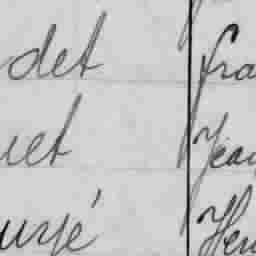 det fra
uet Jean
urjé Hen